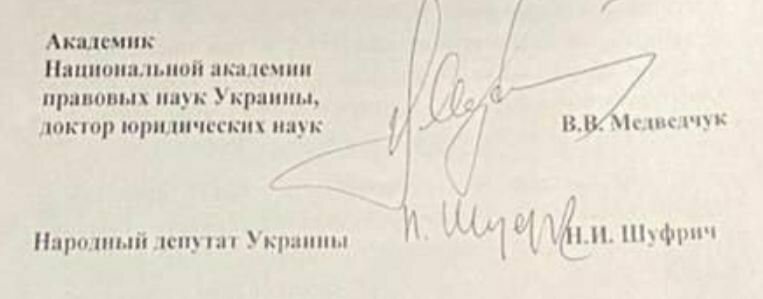 Академик
Национальной академии
правовых наук Украины,
доктор юридических наук
В.В. Медведчук
Народный депутат Украины
Н. Шуфрич
Н.И. Шуфрич